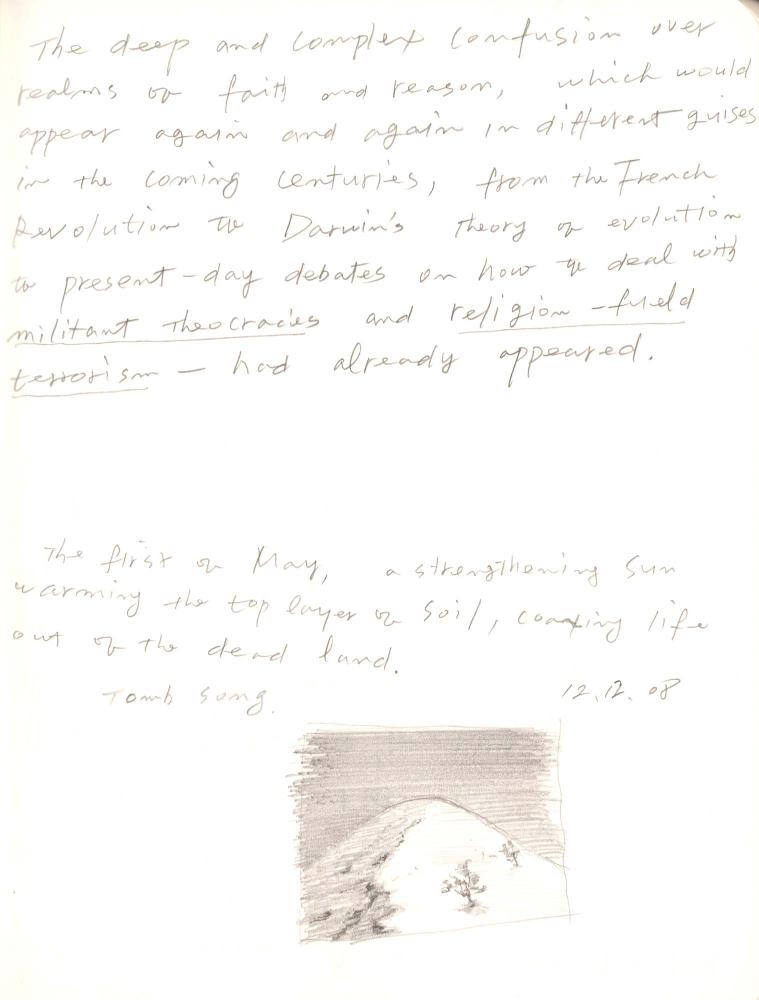 The deep and complex confusion over
realms of faith and reason, which would
appear again and again in different guises
in the coming centuries, from the French
Revolution to Darwin's theory of evolution
to present-day debates on how to deal with
militant theocracies and religion-fueld
terrorism — had already appeared.
The first of May, a strengthening sun
warming the top layer of soil, coaxing life
out of the dead land.
Tomb Song.
12.12.08